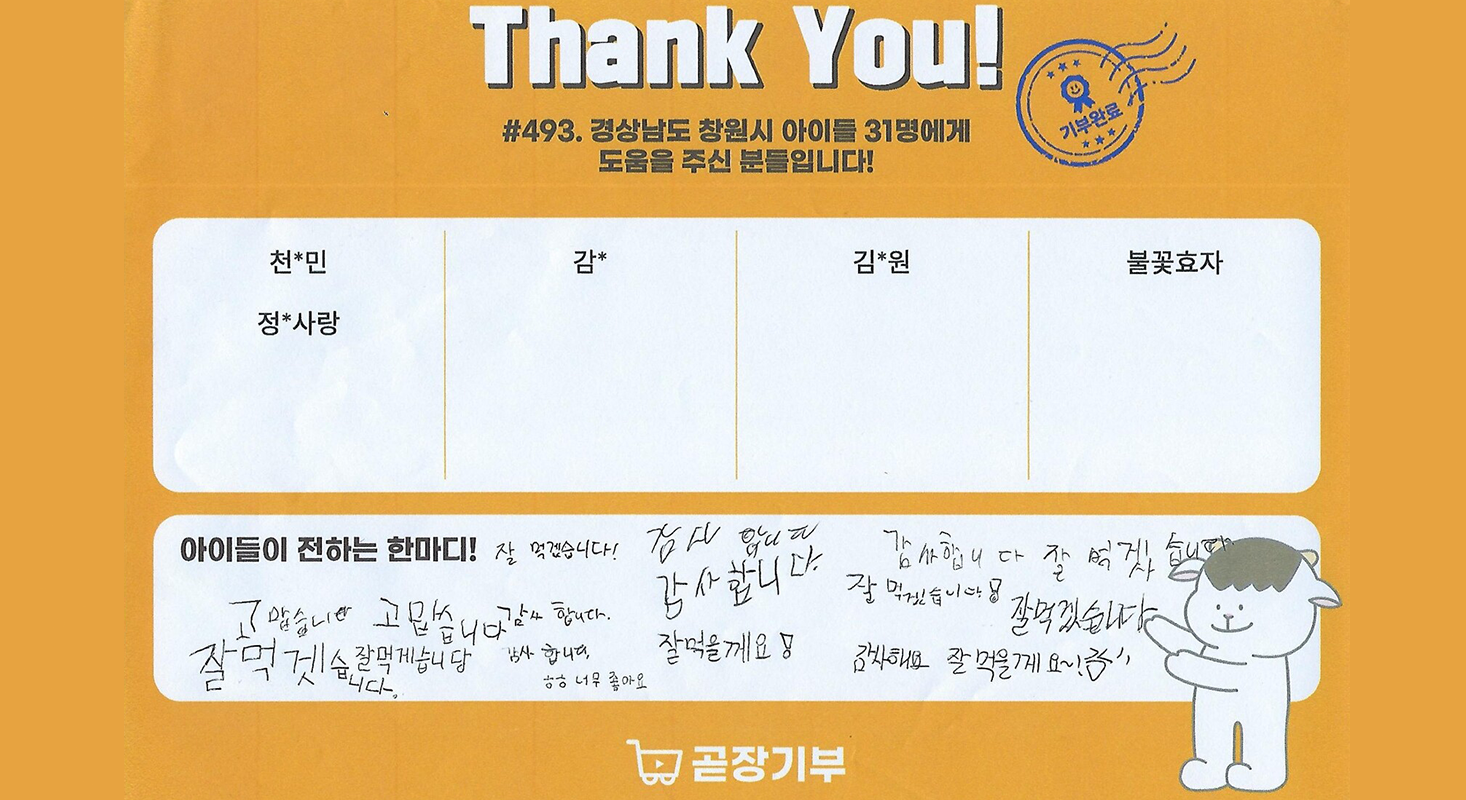 Thank You!
기부완료
#493. 경상남도 창원시 아이들 31명에게
도움을 주신 분들입니다!
천*민
감*
김*원
불꽃효자
정*사랑
아이들이 전하는 한마디!
잘 먹겠습니다!
감사 합니다
감사합니다.
감사합니다 잘 먹겟습니다
잘 먹겠습니다!
잘먹겠습니다
고맙습니다
고맙습니다
감사 합니다.
잘먹겟습니다.
잘먹게습니당
감사 합니다.
ㅎㅎ 너무 좋아요
잘먹을께요!
감사해요 잘 먹을께요~!
곧장기부